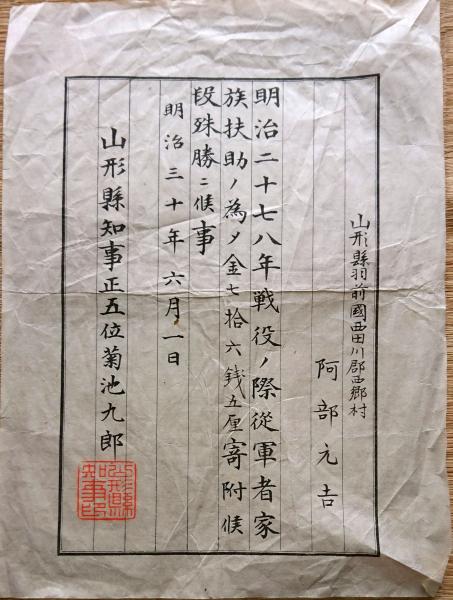 山形縣羽前國西田川郡西郷村
阿部元吉
明治二十七八年戦役ノ際従軍者家
族扶助ノ為メ金七拾六銭五厘寄附候
段殊勝ニ候事
明治三十年六月一日
山形縣知事正五位菊池九郎
山形縣
知事印